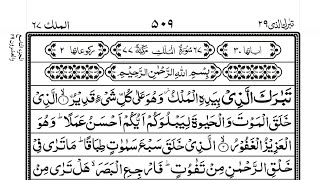 تبرك الذی ٢٩ ٥٠٩ الملك ٦٧
اٰیاتها ٣٠ ٦٧ سُوْرَةُ الْمُلْكِ مَكِّیَّةٌ ٧٧ رکوعاتها ٢
بِسْمِ اللّٰهِ الرَّحْمٰنِ الرَّحِیْمِ
تَبٰرَكَ الَّذِیْ بِیَدِهِ الْمُلْكُ ؗ وَ هُوَ عَلٰی كُلِّ شَیْءٍ قَدِیْرُ ۙ﴿۱﴾ الَّذِیْ
خَلَقَ الْمَوْتَ وَ الْحَیٰوةَ لِیَبْلُوَكُمْ اَیُّكُمْ اَحْسَنُ عَمَلًا ؕ وَ هُوَ
الْعَزِیْزُ الْغَفُوْرُ ۙ﴿۲﴾ الَّذِیْ خَلَقَ سَبْعَ سَمٰوٰتٍ طِبَاقًا ؕ مَا تَرٰی فِیْ
خَلْقِ الرَّحْمٰنِ مِنْ تَفٰوُتٍ ؕ فَارْجِعِ الْبَصَرَ ۙ هَلْ تَرٰی مِنْ